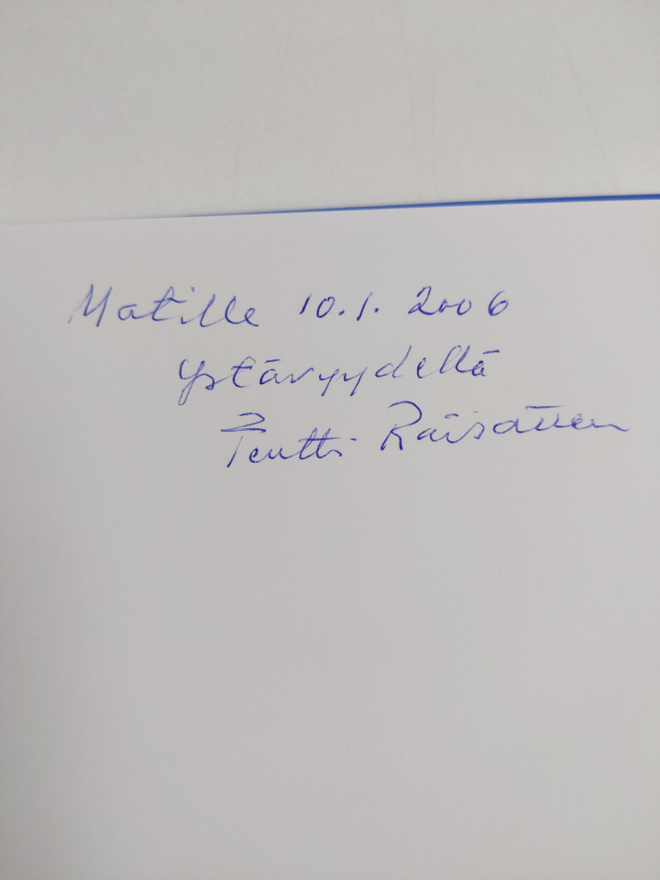 Matille 10.1.2006
Ystävyydellä
Pentti Räisänen